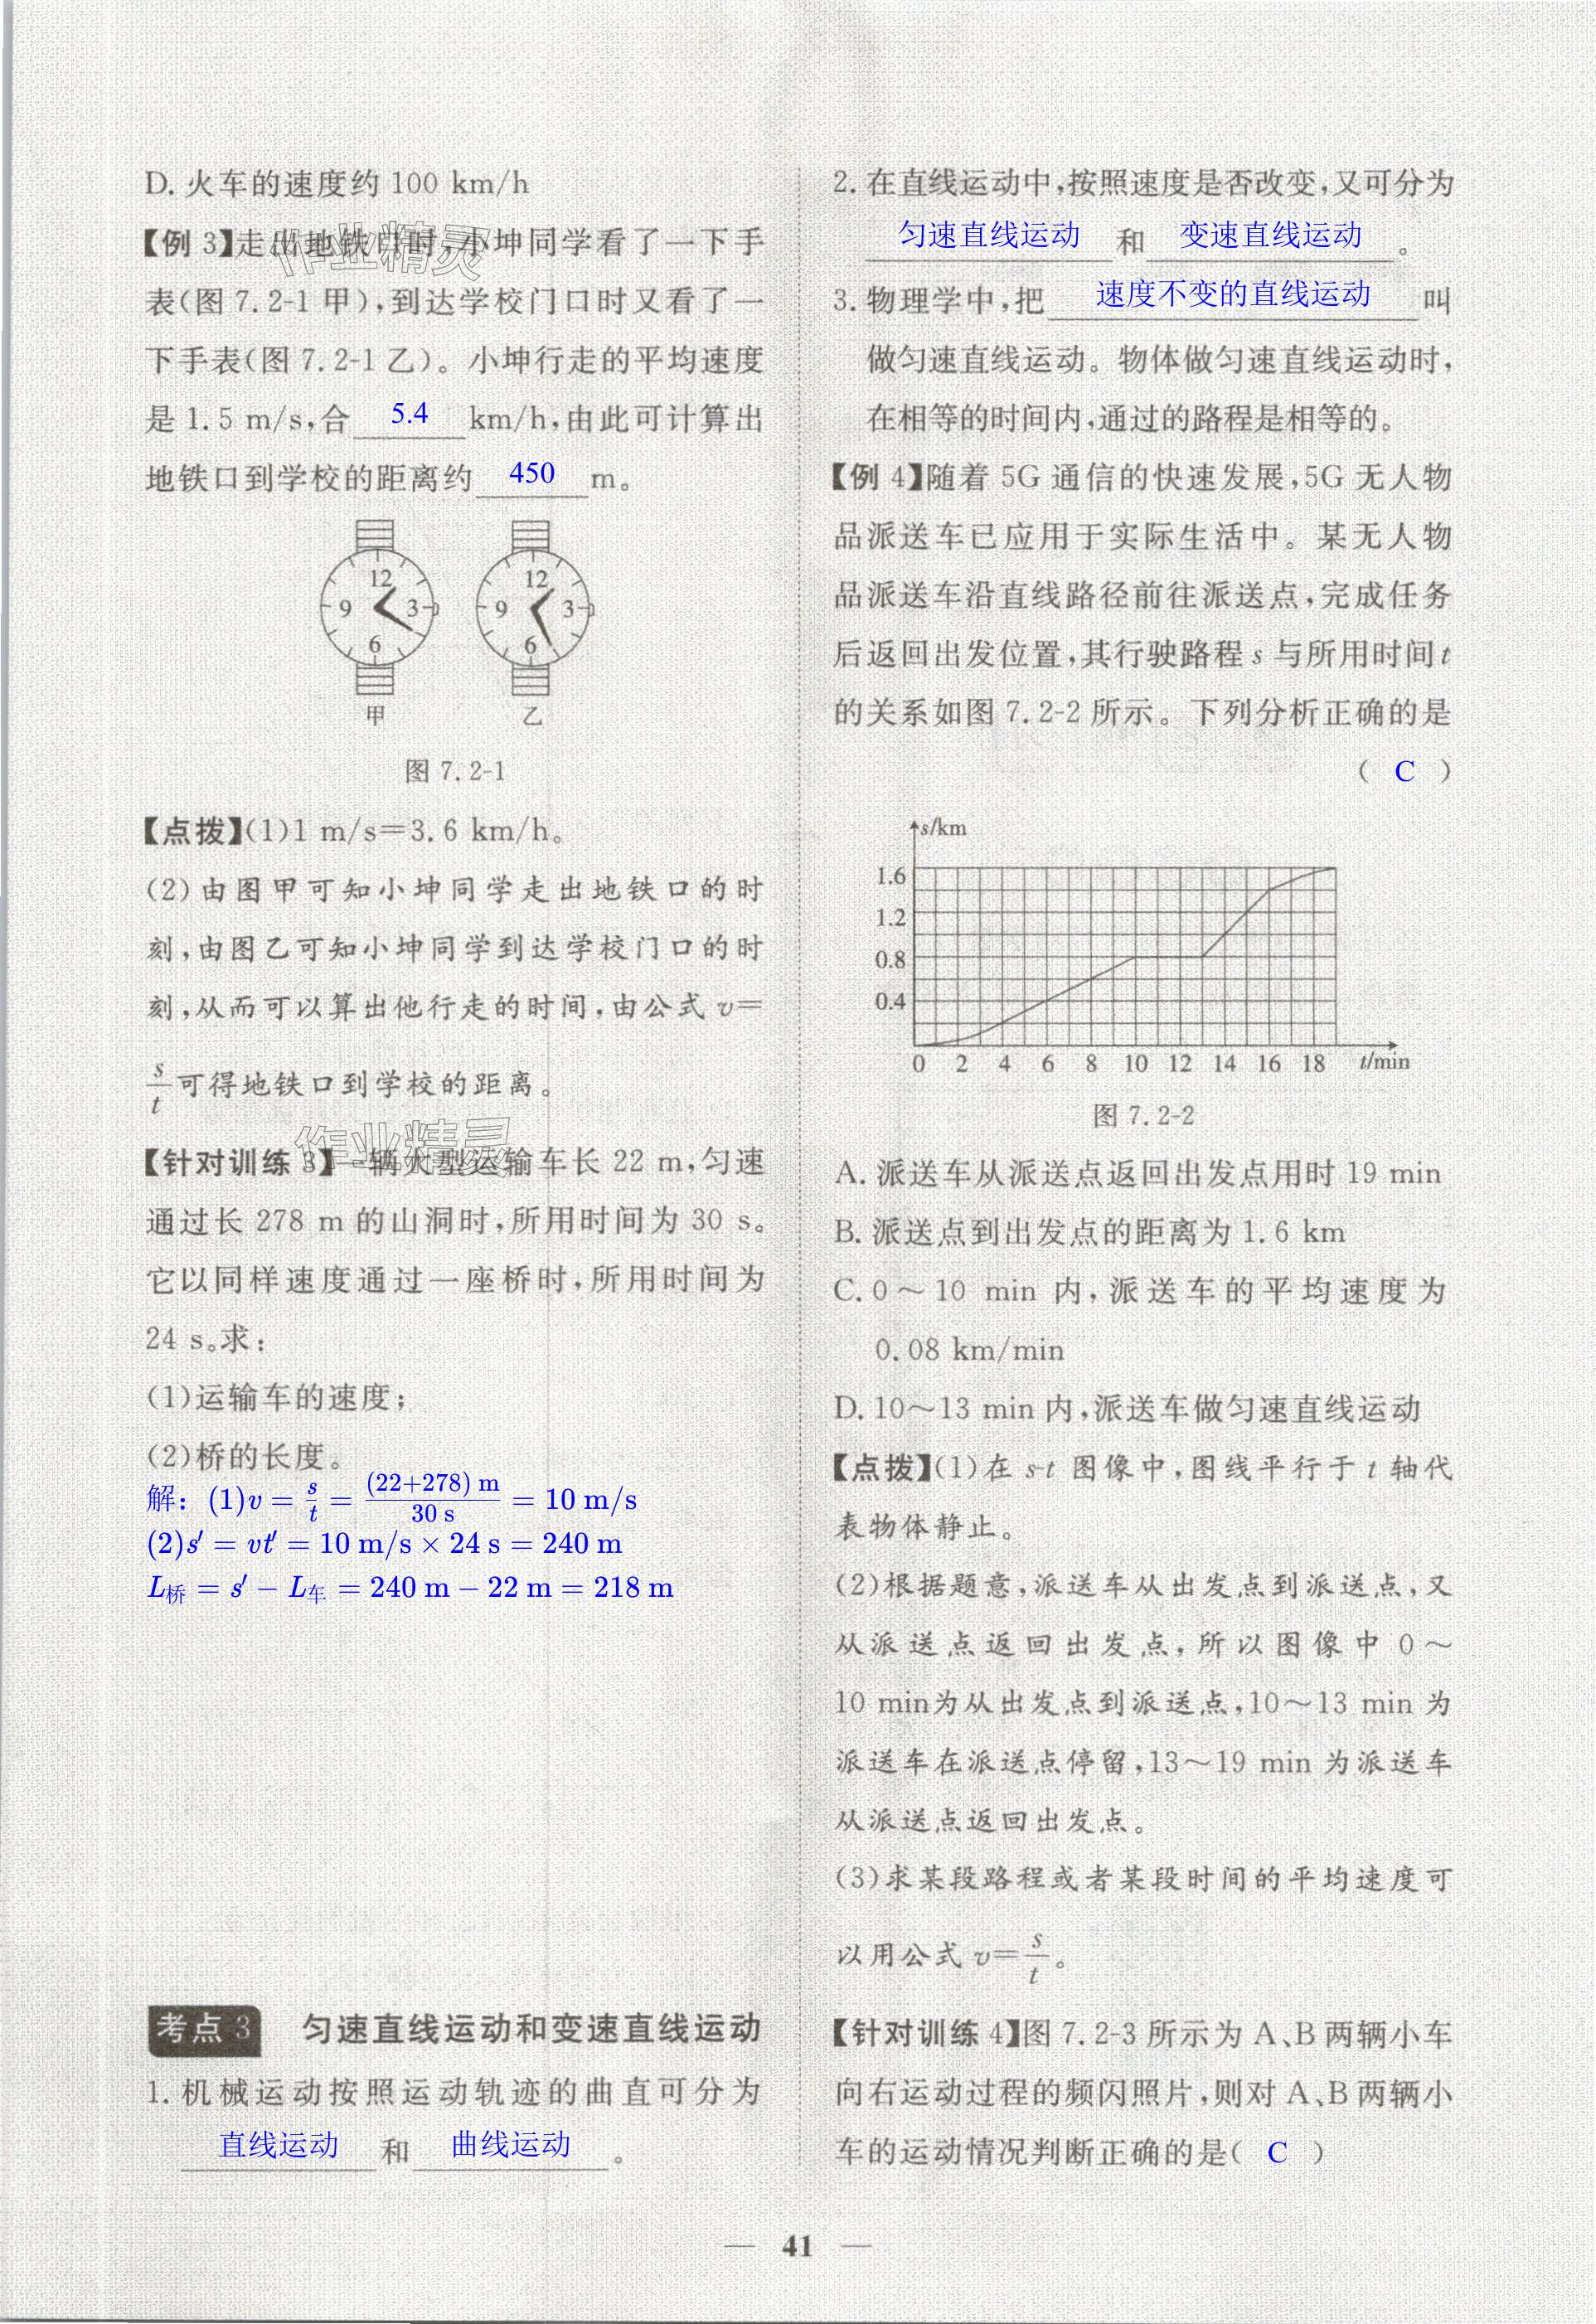 D. 火车的速度约 100 km/h
【例 3】走出地铁口时,小坤同学看了一下手
表(图 7.2-1 甲),到达学校门口时又看了一
下手表(图 7.2-1 乙)。小坤行走的平均速度
是 1.5 m/s,合 5.4 km/h,由此可计算出
地铁口到学校的距离约 450 m。
12 3 6 9
12 3 6 9
甲 乙
图 7.2-1
【点拨】(1)1 m/s=3.6 km/h。
(2)由图甲可知小坤同学走出地铁口的时
刻,由图乙可知小坤同学到达学校门口的时
刻,从而可以算出他行走的时间,由公式 v=
s/t 可得地铁口到学校的距离。
【针对训练 3】一辆大型运输车长 22 m,匀速
通过长 278 m 的山洞时,所用时间为 30 s。
它以同样速度通过一座桥时,所用时间为
24 s。求:
(1)运输车的速度;
(2)桥的长度。
解:(1)v = s/t = (22+278) m/30 s = 10 m/s
(2)s′ = vt′ = 10 m/s × 24 s = 240 m
L桥 = s′ − L车 = 240 m − 22 m = 218 m
考点 3 匀速直线运动和变速直线运动
1. 机械运动按照运动轨迹的曲直可分为
直线运动 和 曲线运动 。
2. 在直线运动中,按照速度是否改变,又可分为
匀速直线运动 和 变速直线运动 。
3. 物理学中,把 速度不变的直线运动 叫
做匀速直线运动。物体做匀速直线运动时,
在相等的时间内,通过的路程是相等的。
【例 4】随着 5G 通信的快速发展,5G 无人物
品派送车已应用于实际生活中。某无人物
品派送车沿直线路径前往派送点,完成任务
后返回出发位置,其行驶路程 s 与所用时间 t
的关系如图 7.2-2 所示。下列分析正确的是
( C )
s/km
1.6
1.2
0.8
0.4
0 2 4 6 8 10 12 14 16 18 t/min
图 7.2-2
A. 派送车从派送点返回出发点用时 19 min
B. 派送点到出发点的距离为 1.6 km
C. 0～10 min 内,派送车的平均速度为
0.08 km/min
D. 10～13 min 内,派送车做匀速直线运动
【点拨】(1)在 s-t 图像中,图线平行于 t 轴代
表物体静止。
(2)根据题意,派送车从出发点到派送点,又
从派送点返回出发点,所以图像中 0～
10 min为从出发点到派送点,10～13 min 为
派送车在派送点停留,13～19 min 为派送车
从派送点返回出发点。
(3)求某段路程或者某段时间的平均速度可
以用公式 v=s/t。
【针对训练 4】图 7.2-3 所示为 A、B 两辆小车
向右运动过程的频闪照片,则对 A、B 两辆小
车的运动情况判断正确的是( C )
— 41 —
作业精灵
作业精灵